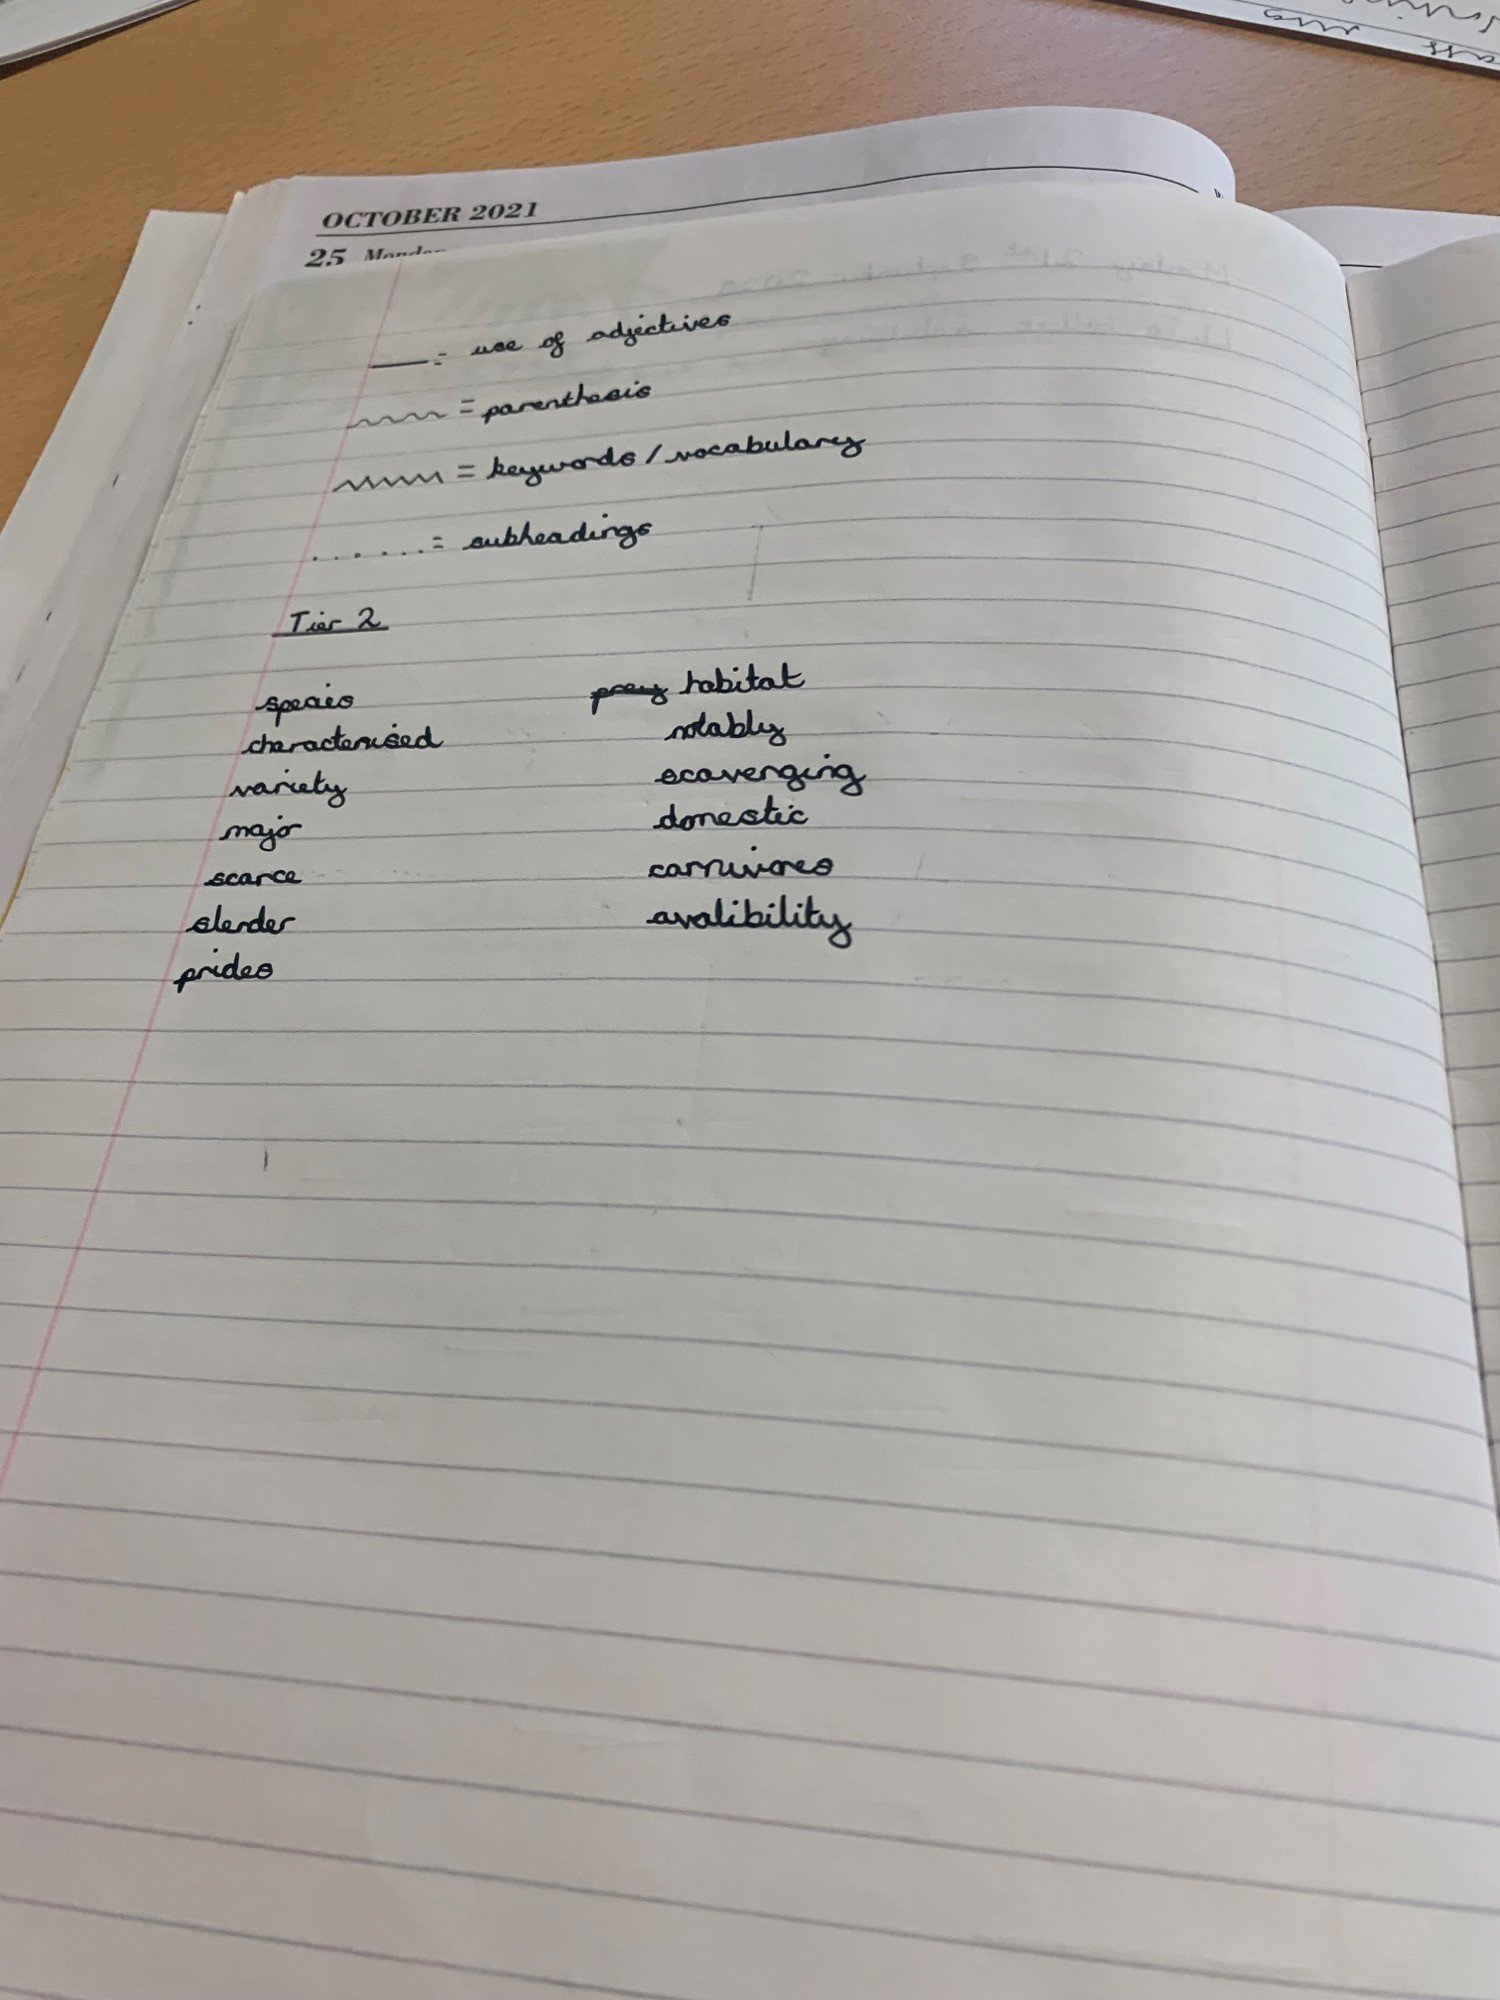 OCTOBER 2021
25 Monday
= use of adjectives
= parenthesis
= keywords / vocabulary
......= subheadings
Tier 2
species
characterised
variety
major
scarce
slender
prides
prey habitat
notably
scavenging
domestic
carnivores
avalibility